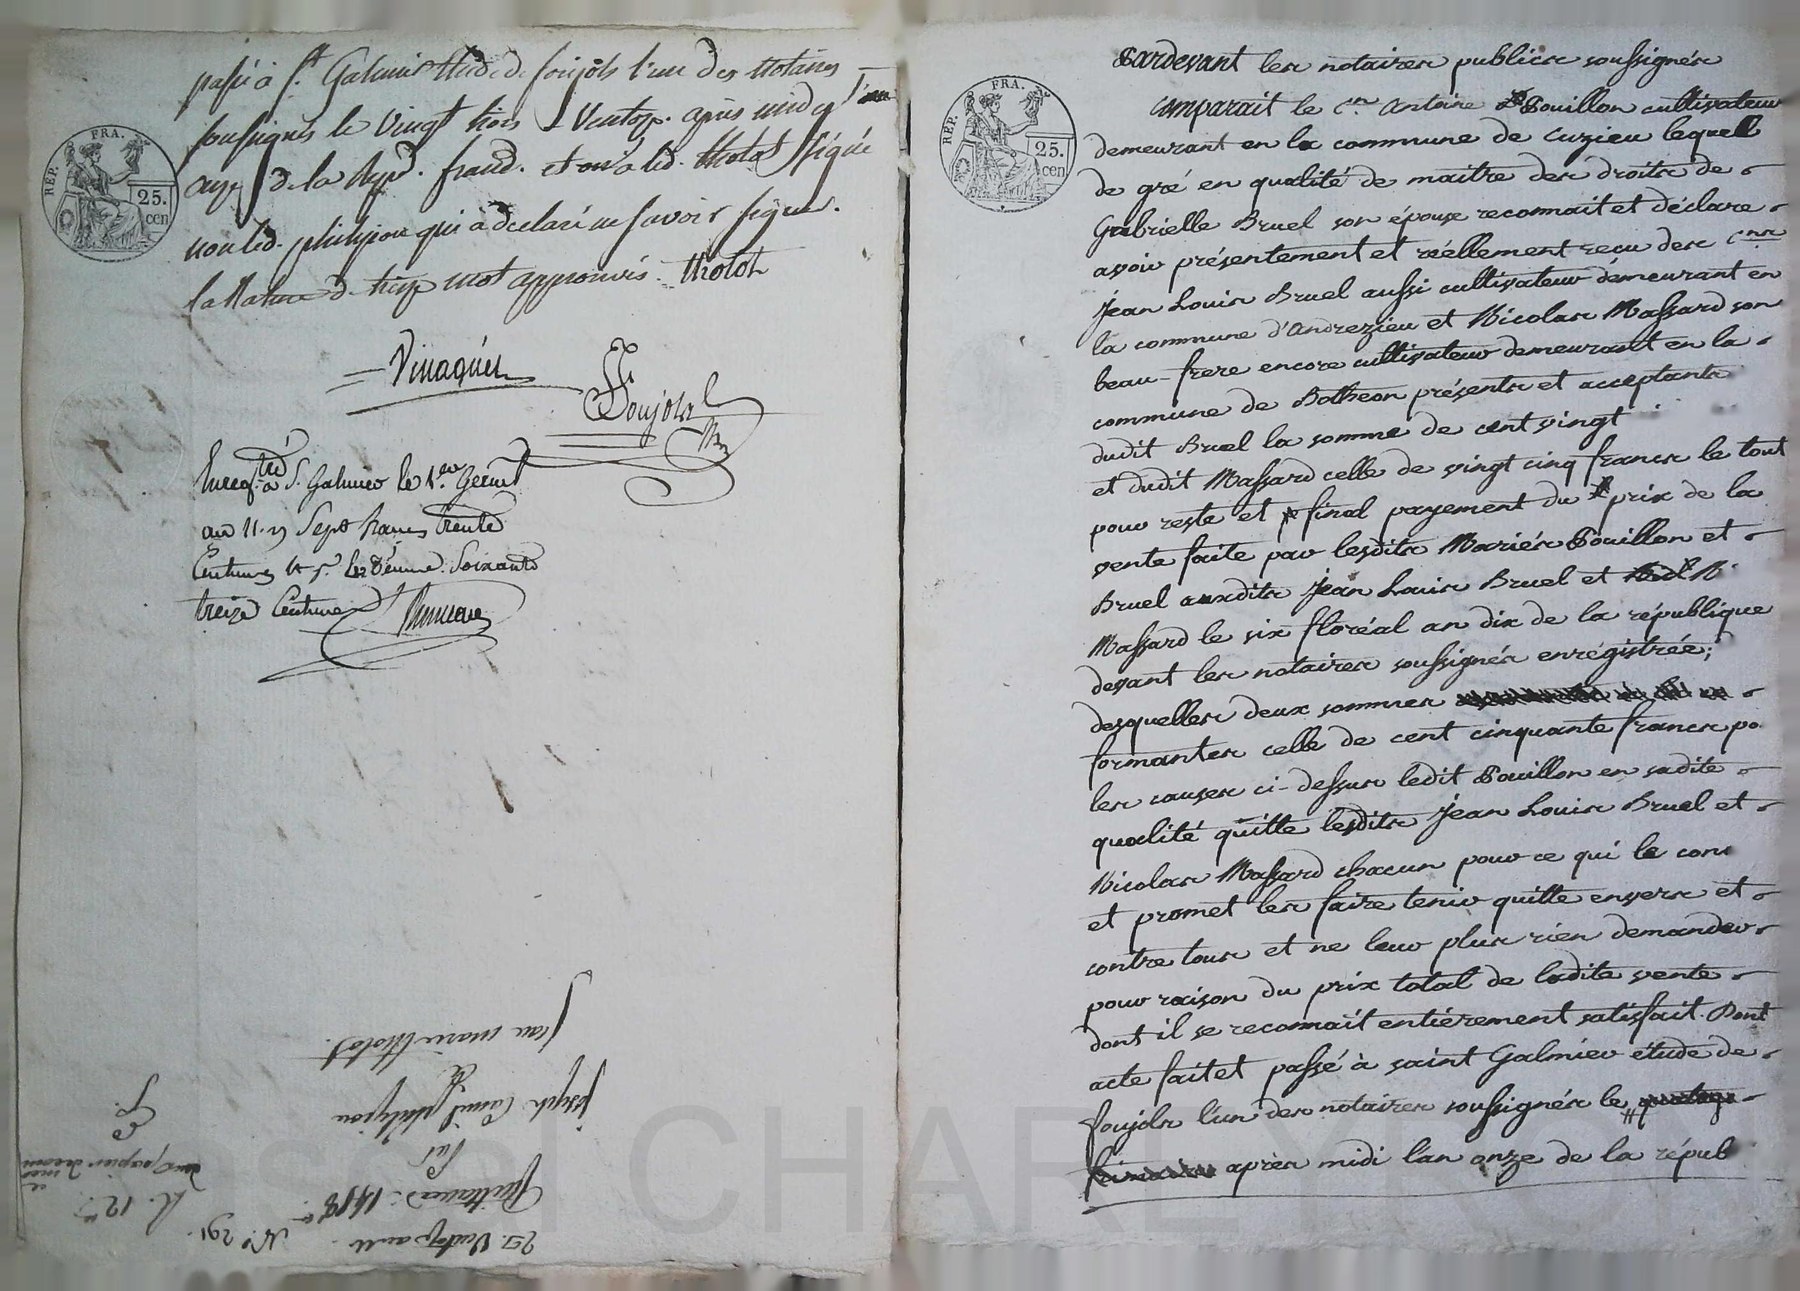 passé à St. Galmier étude de soujols l'un des Notaires
soussignés le vingt trois Ventose après midy l'an
onze de la Rep. franc. et ont lesd. tholot signé
non led. philipion qui a declaré ne savoir signer.
la Nature de treize mot approuvés. thotot
Vinaquer
Soujols
Enreg. à St. Galmier le 1er. Germl
an 11. Sept francs trente
Centimes Soixante
treize Centimes
FRA.
REP.
25.
cen
Jean marie tholot.
joseph philipion
Par
Quittance
23 Ventose an 11
N.o 291
R. 12
Pardevant les notaires publics soussignés
comparait le Cen. Antoine Pouillon cultivateur
demeurant en la commune de Cuzieu lequel
de gré en qualité de maitre des droits de
Gabrielle Bruel son épouse reconnait et déclare
avoir présentement et réellement reçu des Cens
Jean Louis Bruel aussi cultivateur demeurant en
la commune d'Andrezieu et Nicolas Massard son
beau-frere encore cultivateur demeurant en la
commune de Botheon présents et acceptants
dudit Bruel la somme de cent vingt
et dudit Massard celle de vingt cinq francs le tout
pour reste et final payement du prix de la
vente faite par lesdits Mariés Pouillon et
Bruel auxdits Jean Louis Bruel et N
Massard le six floréal an dix de la république
devant les notaires soussignés enrégistrée;
desquelles deux sommes
formantes celle de cent cinquante francs po
les causes ci-dessus ledit Pouillon en sadite
qualité quitte lesdits Jean Louis Bruel et
Nicolas Massard chacun pour ce qui le conc
et promet les faire tenir quitte envers et
contre tous et ne leur plus rien demander
pour raison du prix total de ladite vente
dont il se reconnait entiérement satisfait. Dont
acte fait et passé à saint Galmier étude de
Soujols l'un des notaires soussignés le
après midi lan onze de la répub
REP.
FRA.
25.
cen
Pascal CHAREYRON